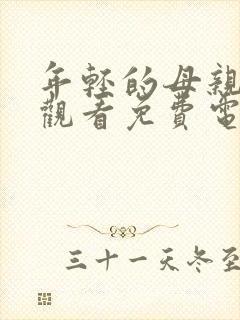 年輕的母親
觀看免費電
三十一天冬至